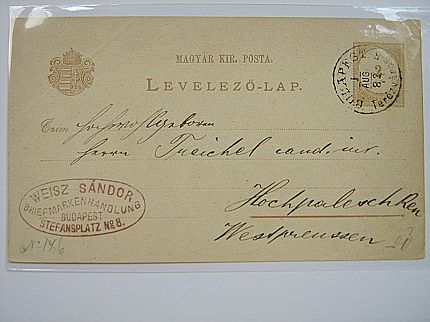 MAGYAR KIR. POSTA.
LEVELEZŐ-LAP.
BUDAPEST
AUG
Hochwohlgeboren
Herrn Treichel cand. iur.
Hochpaleschken
Westpreussen
WEISZ SÁNDOR,
BRIEFMARKENHANDLUNG
BUDAPEST
STEFANSPLATZ No 8.